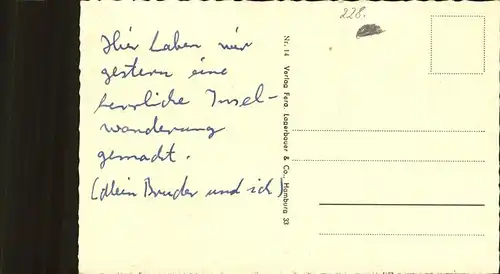 Hier haben wir
gestern eine
herrliche Insel-
wanderung
gemacht.
(Mein Bruder und ich)
Nr. 14 Verlag Ferd. Lagerbauer & Co., Hamburg 33
228.